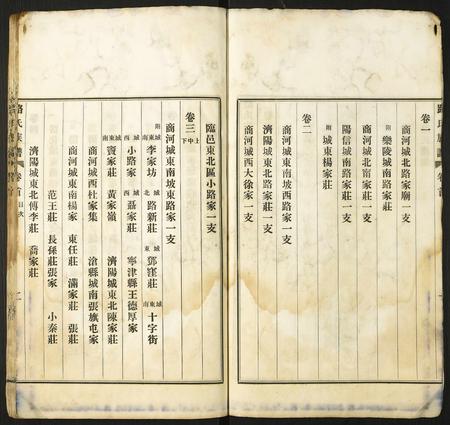 路氏族譜 卷首
卷一
商河城北路家廟一支
附 樂陵城南路家莊
商河城北甯家莊一支
陽信城南路家莊一支
附 城東楊家莊
卷二
商河城東南坡西路家一支
濟陽城東北路家莊一支
商河城西大徐家一支
臨邑東北區小路家一支
卷三 上中下
商河城東南坡東路家一支
附 城東南 李家坊 城北 路新莊 城東 鄧窪莊 城東南 十字街
城西 小路家 城西 聶家莊 寧津縣王德厚家
城東南 竇家莊 黃家嶺 濟陽城東北陳家莊
商河城西杜家集 滄縣城南張旗屯家
商河城東南楊家 東任莊 滿家莊 張莊
范王莊 長孫莊張家 小泰莊
濟陽城東北傅李莊 喬家莊
路氏族譜 卷首 目次 二